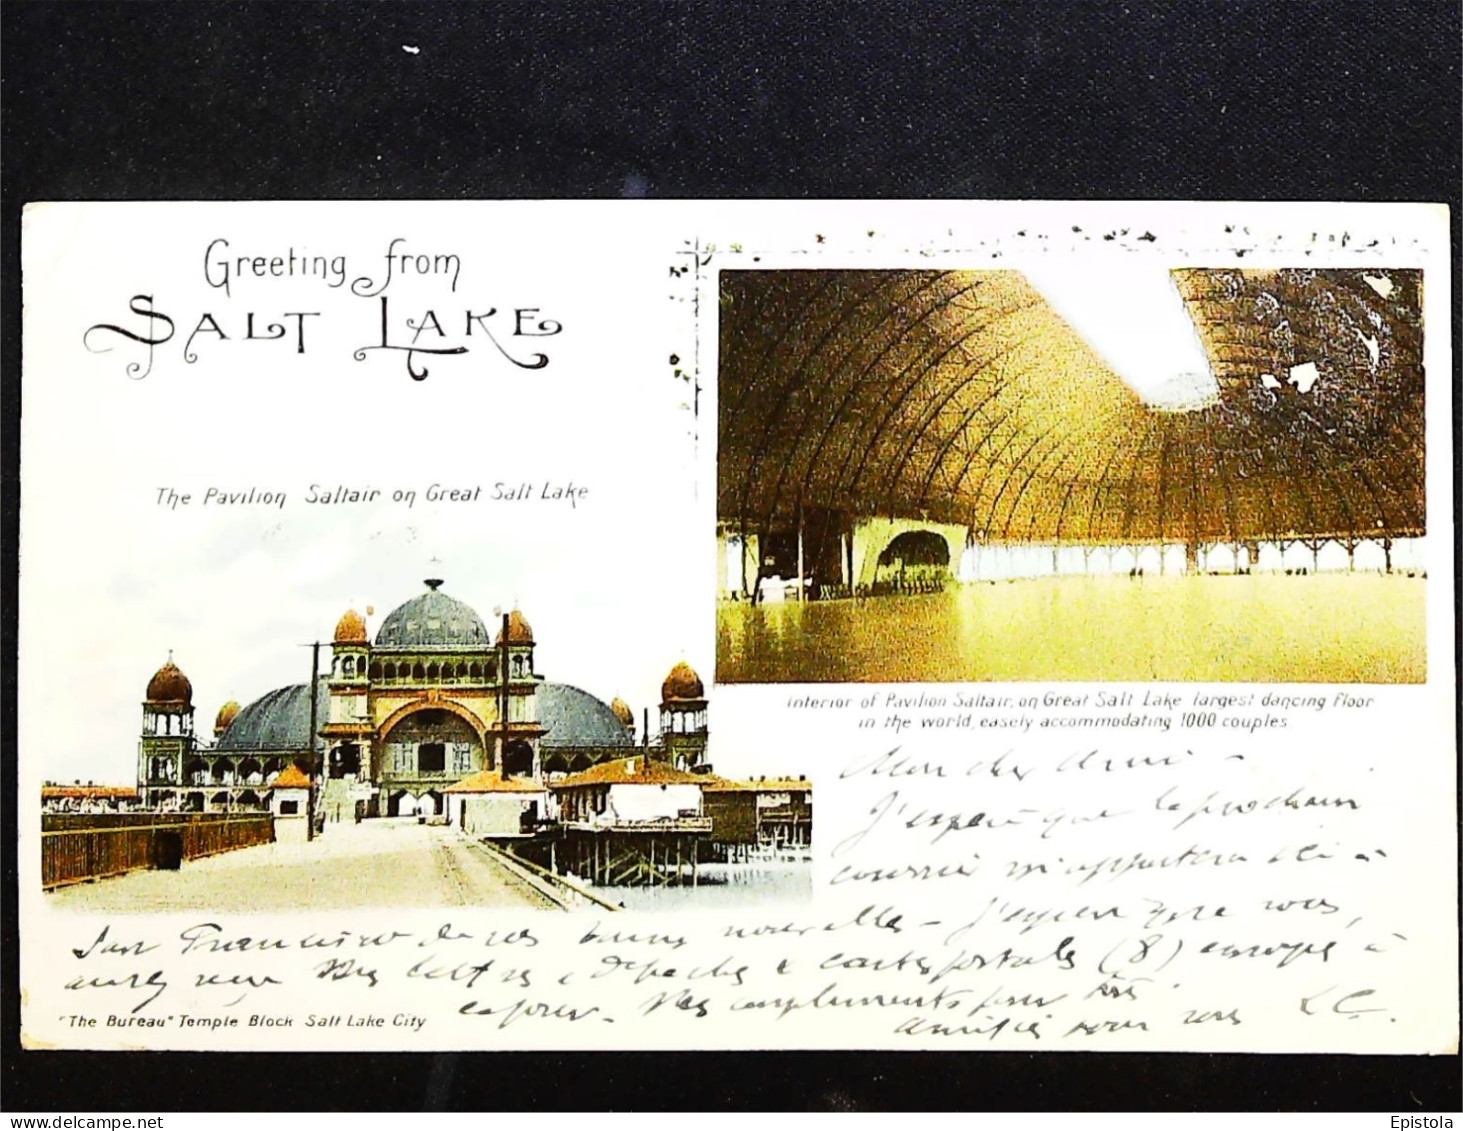 Greeting from
SALT LAKE
The Pavilion Saltair on Great Salt Lake
Interior of Pavilion Saltair, on Great Salt Lake largest dancing floor
in the world, easely accommodating 1000 couples
Mon cher Ami -
J'espère que le prochain
courrier m'apportera ici à
San Francisco de vos bonnes nouvelles - J'espère que vous
aurez reçu mes lettres, dépêches & cartes postales (8) envoyés à
Mes compliments pour
amitiés pour vous L C.
"The Bureau" Temple Block Salt Lake City
Epistola